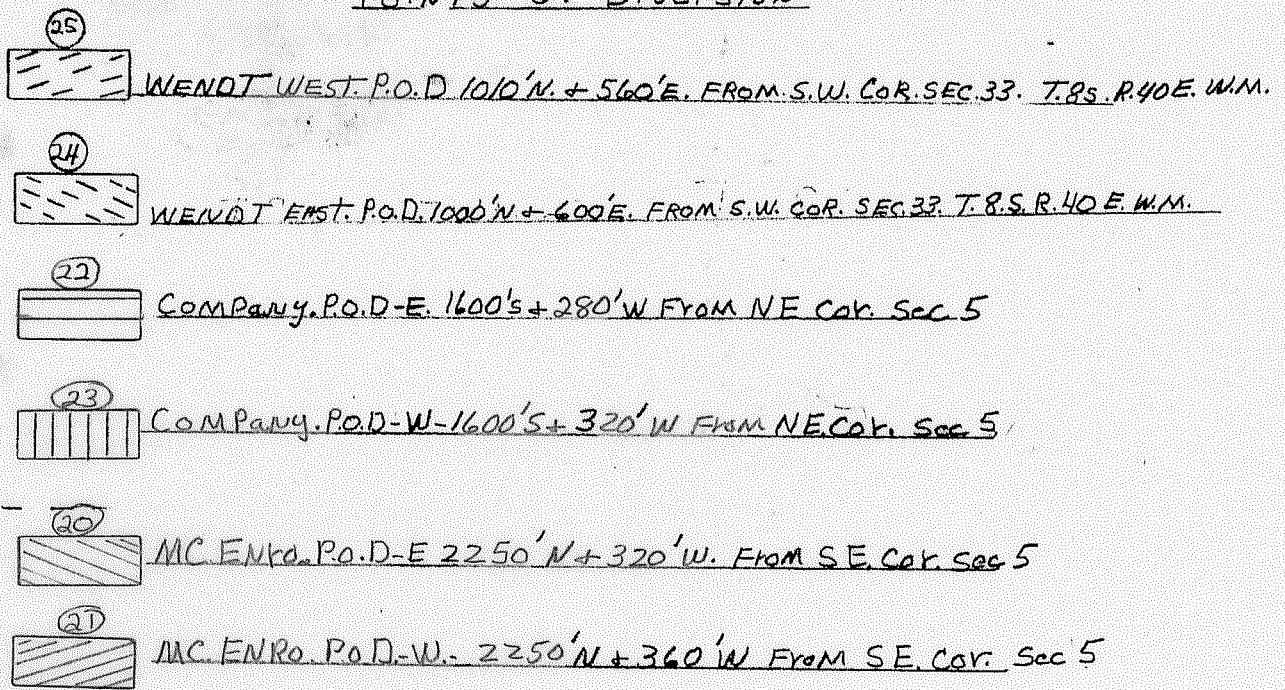 POINTS OF DIVERSION
25
WENDT WEST. P.O.D 1010'N. + 560'E. FROM. S.W. COR. SEC. 33. T.8S. R.40E. W.M.
24
WENDT EAST. P.O.D. 1000'N + 600'E. FROM S.W. COR. SEC. 33. T.8.S. R.40 E. W.M.
22
Company. P.O.D-E. 1600's + 280'W From NE Cor. Sec 5
23
Company. P.O.D-W-1600'S + 320'W From NE. Cor. Sec 5
20
MC. ENro. P.O.D-E 2250'N + 320'W. From SE. Cor. Sec 5
21
MC. ENRO. P.O.D.-W.- 2250'N + 360'W From SE. Cor. Sec 5